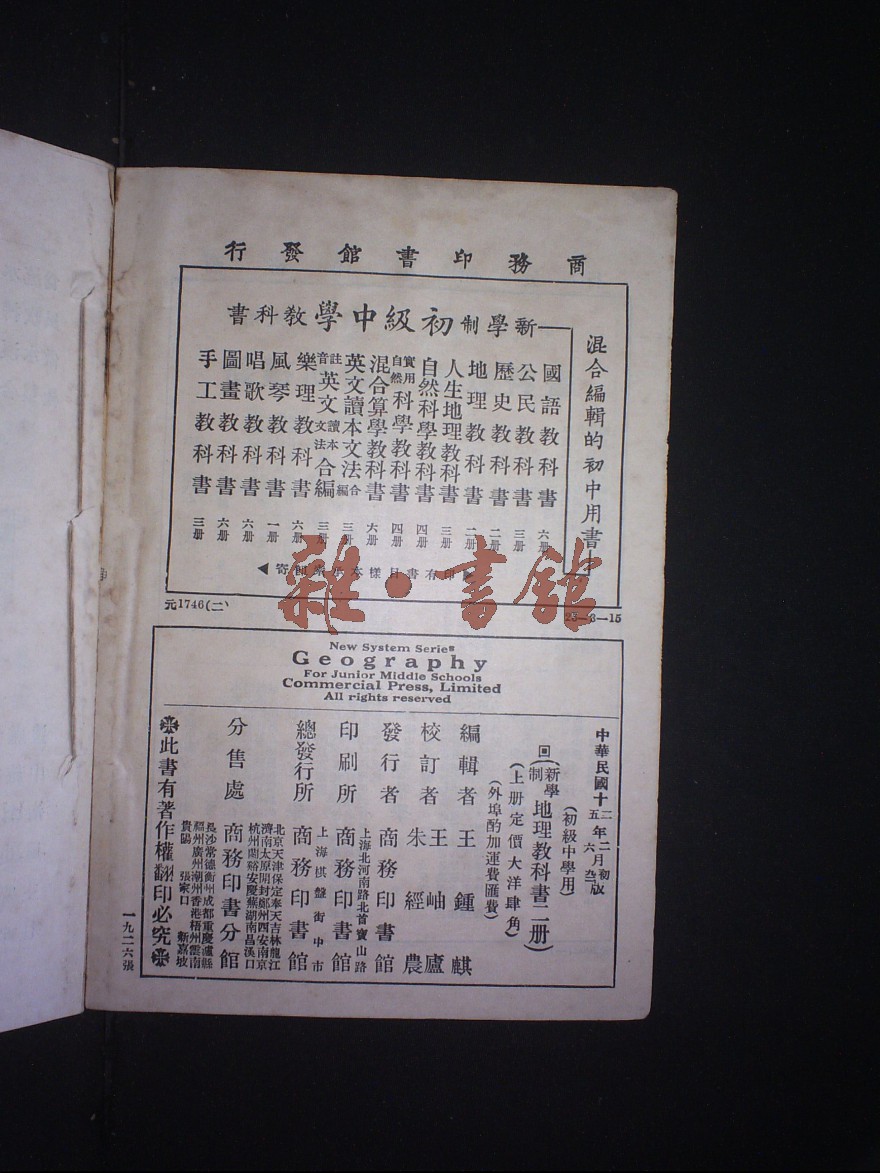 商務印書館發行
混合編輯的初中用書
新學制初級中學教科書
國語教科書 六册
公民教科書 三册
歷史教科書 二册
地理教科書 二册
人生地理教科書 三册
自然科學教科書 四册
實用自然科學教科書 四册
混合算學教科書 六册
英文讀本文法合編 三册
註音英文讀本文法合編 三册
樂理教科書 六册
風琴教科書 一册
唱歌教科書 六册
圖畫教科書 六册
手工教科書 三册
印有書目樣本 索即寄
元1746(二)
15
雜·書館
New System Series
Geography
For Junior Middle Schools
Commercial Press, Limited
All rights reserved
中華民國十二年二月初版
五 六
(初級中學用)
回(新學制地理教科書二册)
(上册定價大洋肆角)
(外埠酌加運費匯費)
編輯者 王鍾麒
校訂者 王岫廬 朱經農
發行者 商務印書館
上海北河南路北首寶山路
印刷所 商務印書館
上海棋盤街中市
總發行所 商務印書館
北京天津保定奉天吉林龍江
濟南太原開封鄭州西安南京
杭州蘭谿安慶蕪湖南昌漢口
分售處 商務印書分館
長沙常德衡州成都重慶瀘縣
福州廣州潮州香港梧州雲南
貴陽 張家口 新嘉坡
此書有著作權翻印必究
一九二六張